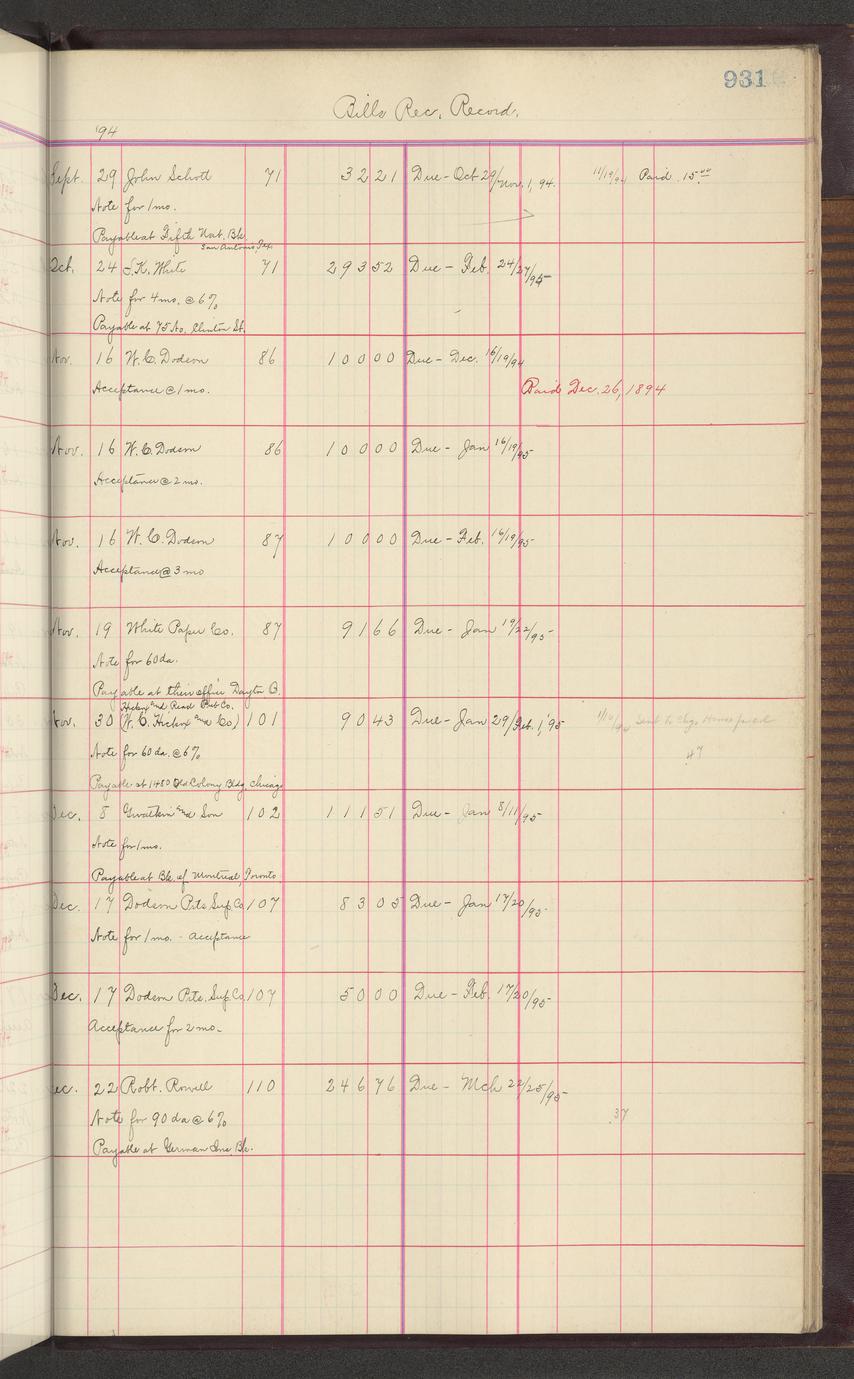 931
Bills Rec. Record.
'94
Sept. 29 John Schott 71 32 21 Due - Oct 29/Nov. 1, 94. 11/19/94 Paid 15.00
Note for 1 mo.
Payable at Fifth Nat. Bk.
San Antonio, Tex.
Oct. 24 S.K. White 71 293 52 Due - Feb. 24/27/95
Note for 4 mo. @ 6%
Payable at 75 No. Clinton St.
Nov. 16 W.C. Dodson 86 100 00 Due - Dec. 16/19/94
Acceptance @ 1 mo. Paid Dec. 26, 1894
Nov. 16 W.C. Dodson 86 100 00 Due - Jan 16/19/95
Acceptance @ 2 mo.
Nov. 16 W.C. Dodson 87 100 00 Due - Feb. 16/19/95
Acceptance @ 3 mo
Nov. 19 White Paper Co. 87 91 66 Due - Jan 19/22/95-
Note for 60 da.
Payable at their office Dayton O.
and Read Pub Co.
Nov. 30 (W.C. and Co) 101 90 43 Due - Jan 29/Feb. 1, '95 Sent to
Note for 60 da. @ 6% .47
Payable at 1480 Old Colony Bldg, Chicago
Dec. 8 Gwatkin and Son 102 111 51 Due - Jan 8/11/95-
Note for 1 mo.
Payable at Bk. of Montreal, Toronto
Dec. 17 Dodson Prts. Sup. Co. 107 83 05 Due - Jan 17/20/95-
Note for 1 mo. - acceptance
Dec. 17 Dodson Prts. Sup. Co. 107 50 00 Due - Feb. 17/20/95-
Acceptance for 2 mo.
Dec. 22 Robt. Rowell 110 246 76 Due - Mch 22/25/95-
Note for 90 da @ 6% .37
Payable at German Ins. Bk.